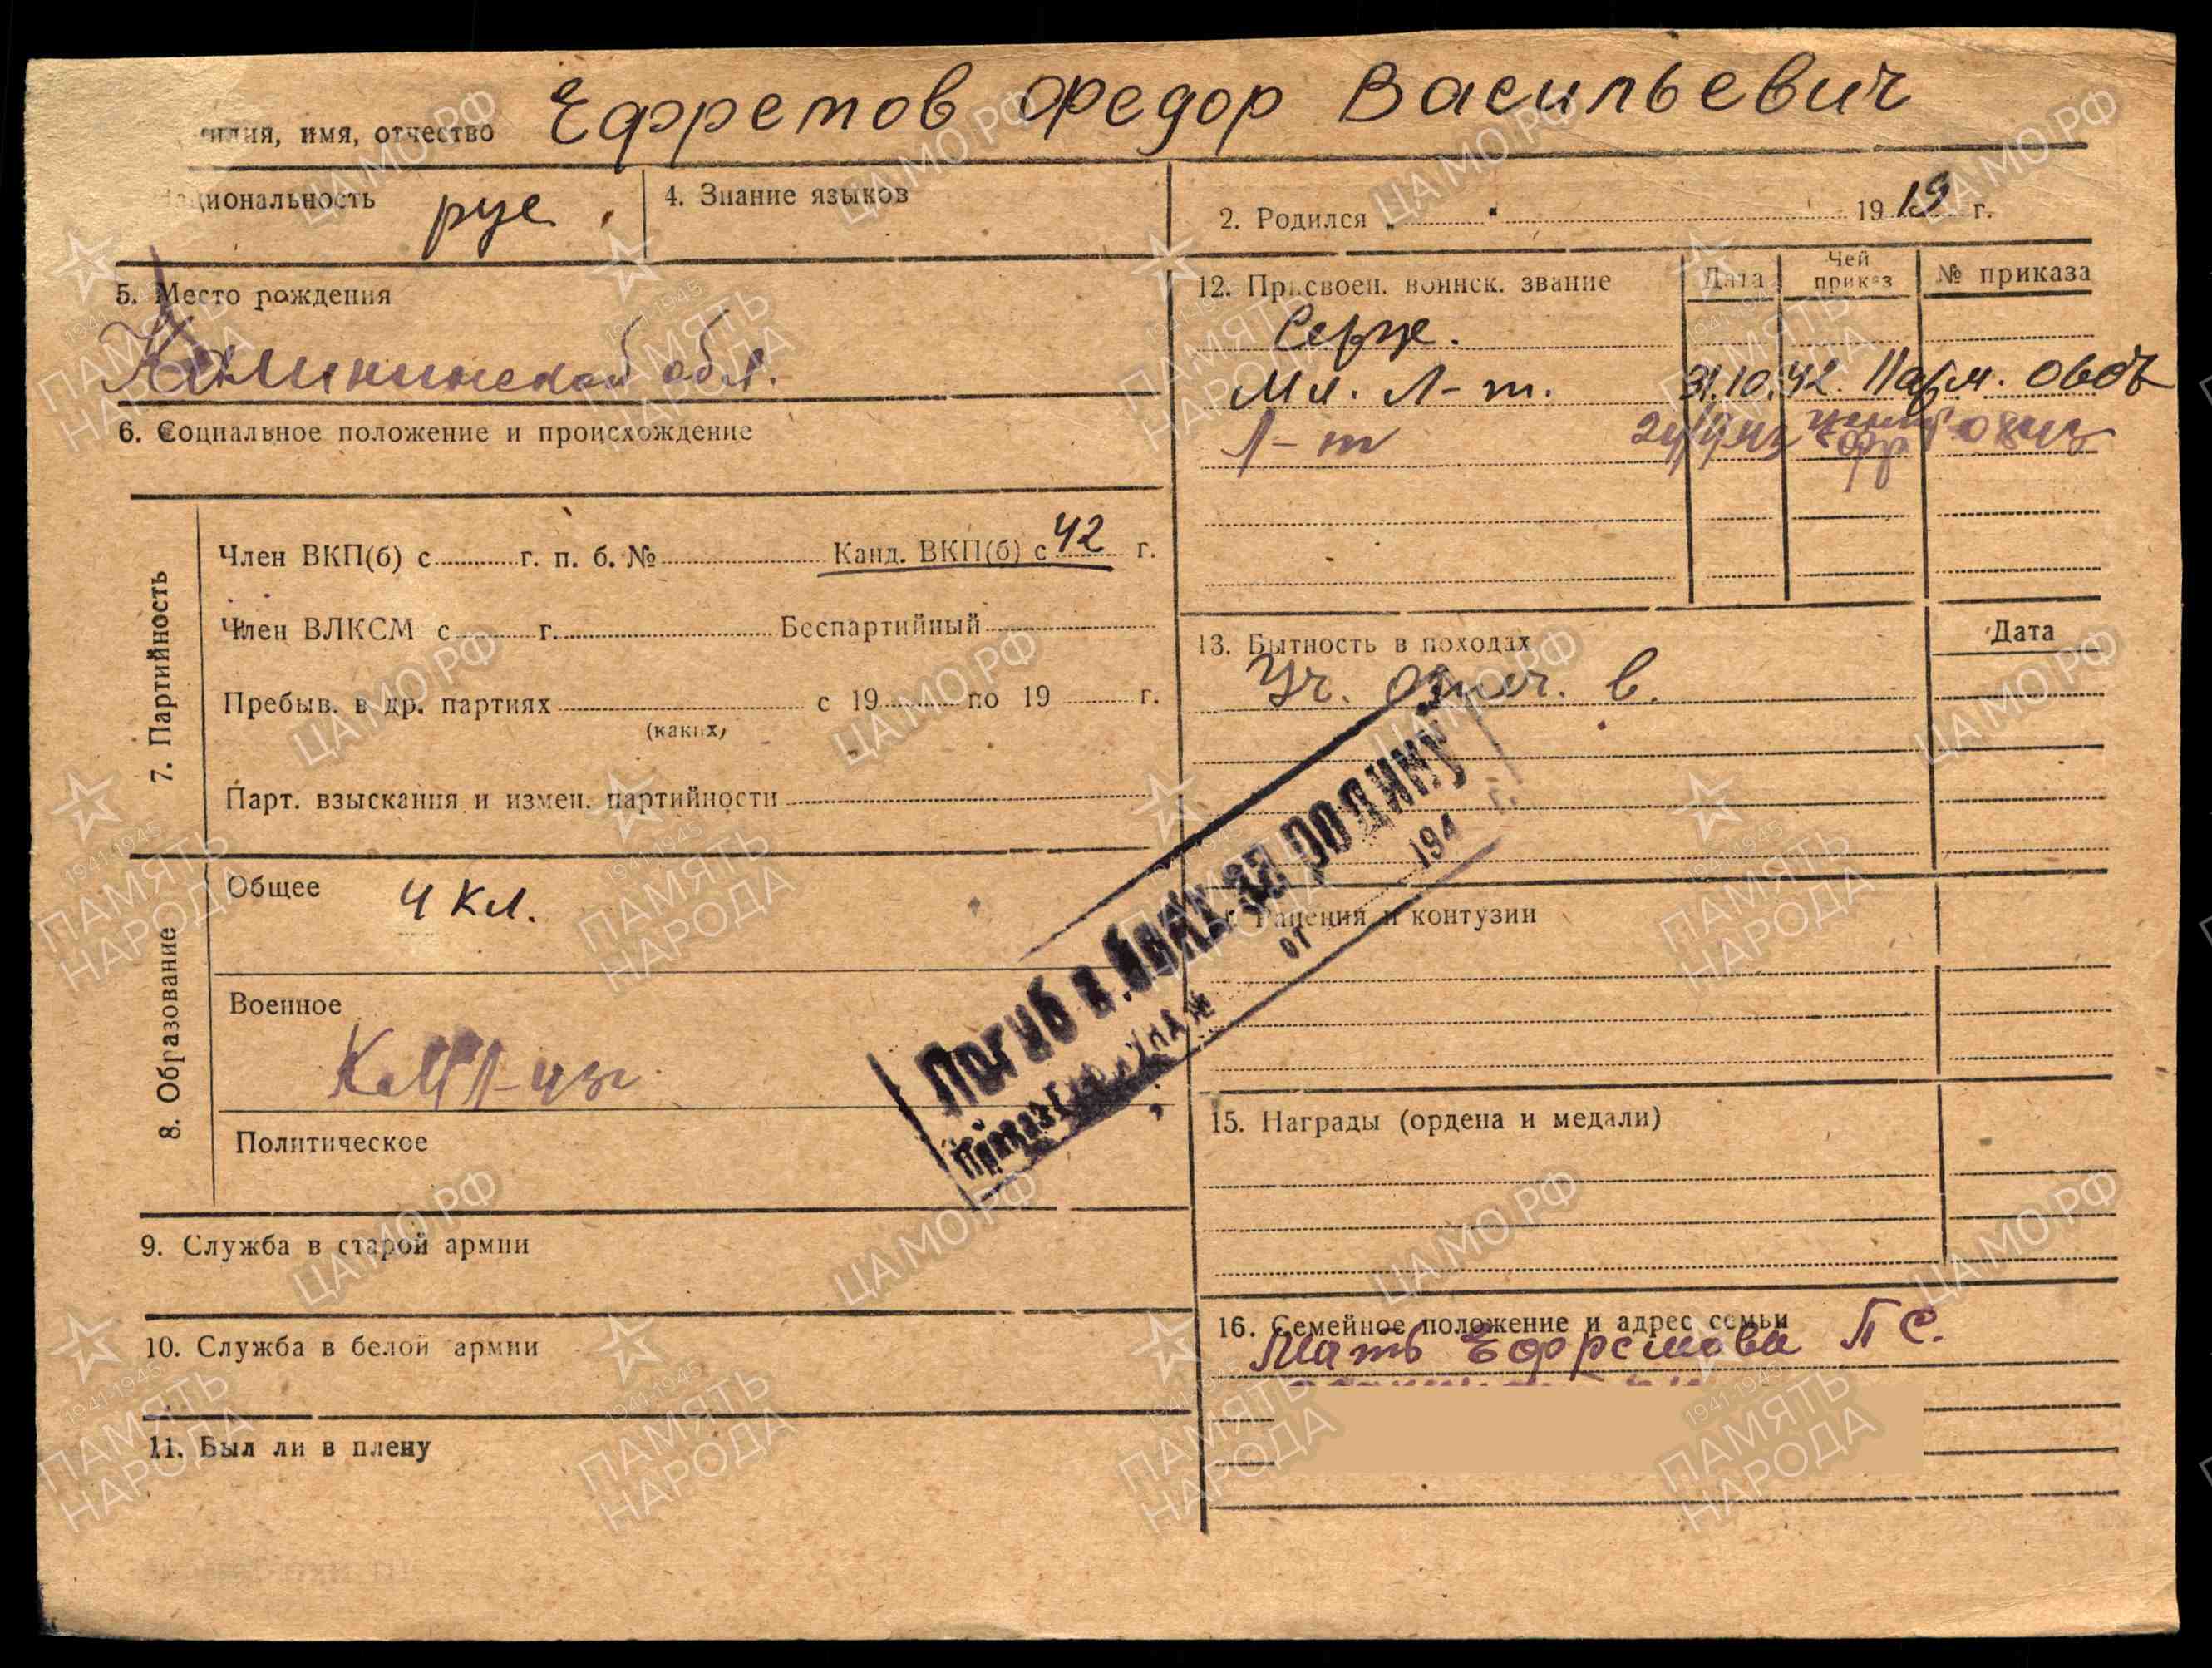 илия, имя, отчество Ефремов Федор Васильевич
циональность рус. 4. Знание языков
2. Родился 1919 г.
5. Место рождения
Калининской обл.
6. Социальное положение и происхождение
7. Партийность
Член ВКП(б) с г. п. б. № Канд. ВКП(б) с 42 г.
Член ВЛКСМ с г. Беспартийный
Пребыв. в др. партиях с 19 по 19 г.
(каких)
Парт. взыскания и измен. партийности
8. Образование
Общее 4 кл.
Военное
Политическое
9. Служба в старой армии
10. Служба в белой армии
11. Был ли в плену
12. Присвоен. воинск. звание Дата Чей приказ № приказа
Серж.
Мл. Л-т. 31.10.42.
Л-т
13. Бытность в походах Дата
Уч. отеч. в.
Ранения и контузии
15. Награды (ордена и медали)
16. Семейное положение и адрес семьи
Мать Ефремова П С.
Погиб в боях за родину
от 194 г.
ЦАМО.РФ
1941-1945
ПАМЯТЬ
НАРОДА